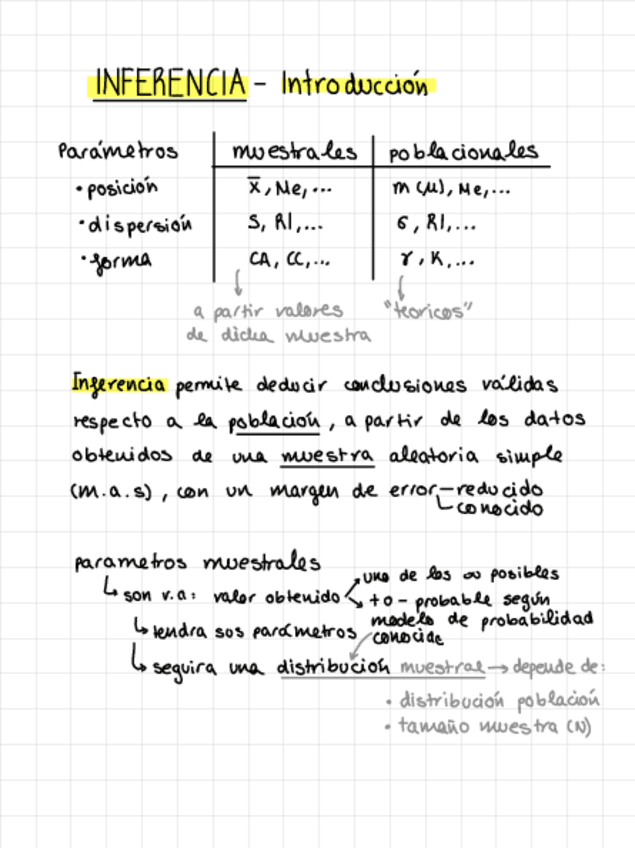 INFERENCIA - Introducción
Parámetros muestrales poblacionales
• posición x̄, Me,... m (μ), Me,...
• dispersión S, RI,... σ, RI,...
• forma CA, CC,... γ, K,...
a partir valores "teoricos"
de dicha muestra
Inferencia permite deducir conclusiones válidas
respecto a la población, a partir de los datos
obtenidos de una muestra aleatoria simple
(m.a.s), con un margen de error - reducido
conocido
parametros muestrales
uno de los ∞ posibles
↳ son v.a: valor obtenido + o - probable según
modelo de probabilidad
↳ tendra sos parámetros conocido
↳ seguira una distribución muestral → depende de:
• distribución población
• tamaño muestra (N)